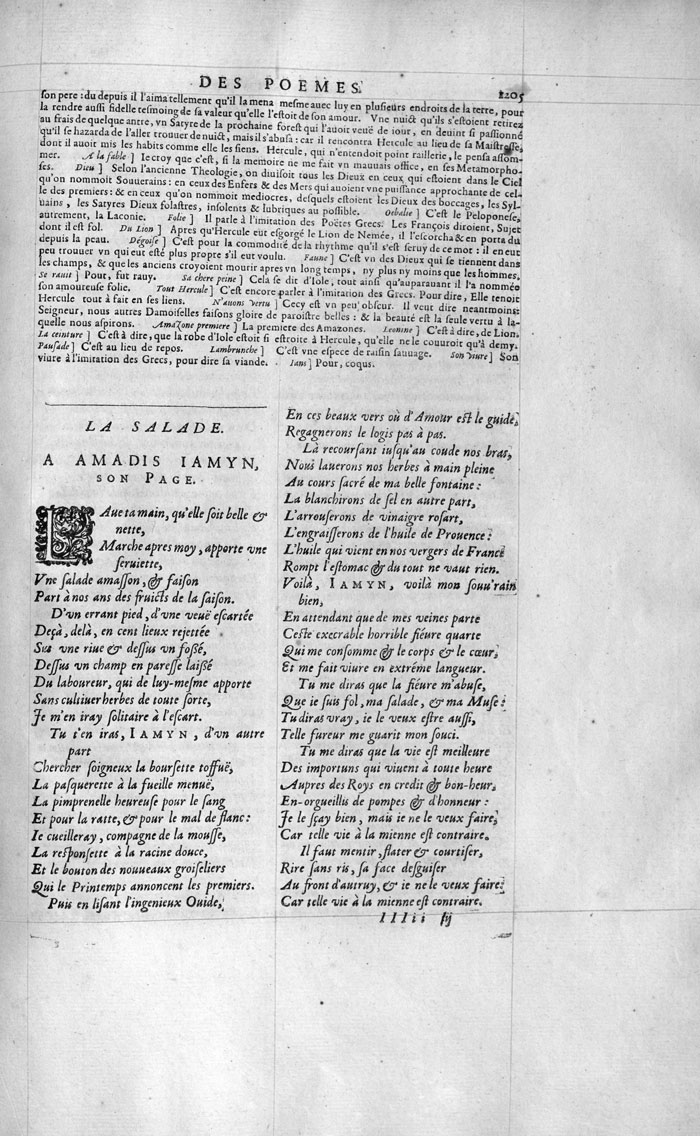 DES POEMES. 1205
son pere : du depuis il l'aima tellement qu'il la mena mesme avec luy en plusieurs endroits de la terre, pour
la rendre aussi fidelle tesmoing de sa valeur qu'elle l'estoit de son amour. Vne nuict qu'ils s'estoient retirez
au frais de quelque antre, vn Satyre de la prochaine forest qui l'auoit veuë de iour, en deuint si passionné
qu'il se hazarda de l'aller trouuer de nuict, mais il s'abusa : car il rencontra Hercule au lieu de sa Maistresse,
dont il auoit mis les habits comme elle les siens. Hercule, qui n'entendoit point raillerie, le pensa assom-
mer. A la fable ] Ie croy que c'est, si la memoire ne me fait vn mauuais office, en ses Metamorpho-
ses. Dieu ] Selon l'ancienne Theologie, on diuisoit tous les Dieux en ceux qui estoient dans le Ciel
qu'on nommoit Souuerains : en ceux des Enfers & des Mers qui auoient vne puissance approchante de cel-
le des premiers : & en ceux qu'on nommoit mediocres, desquels estoient les Dieux des boccages, les Syl-
uains, les Satyres Dieux folastres, insolents & lubriques au possible. Oebalie ] C'est le Peloponese,
autrement, la Laconie. Folie ] Il parle à l'imitation des Poëtes Grecs. Les François diroient, Sujet
dont il est fol. Du Lion ] Apres qu'Hercule eut esgorgé le Lion de Nemée, il l'escorcha & en porta du
depuis la peau. Dégoise ] C'est pour la commodité de la rhythme qu'il s'est seruy de ce mot : il en eut
peu trouuer vn qui eut esté plus propre s'il eut voulu. Faune ] C'est vn des Dieux qui se tiennent dans
les champs, & que les anciens croyoient mourir apres vn long temps, ny plus ny moins que les hommes.
Se rauit ] Pour, fut rauy. Sa chere peine ] Cela se dit d'Iole, tout ainsi qu'auparauant il l'a nommée
son amoureuse folie. Tout Hercule ] C'est encore parler à l'imitation des Grecs. Pour dire, Elle tenoit
Hercule tout à fait en ses liens. N'auons vertu ] Cecy est vn peu obscur. Il veut dire neantmoins:
Seigneur, nous autres Damoiselles faisons gloire de paroistre belles : & la beauté est la seule vertu à la-
quelle nous aspirons. Amazone premiere ] La premiere des Amazones. Leonine ] C'est à dire, de Lion.
La ceinture ] C'est à dire, que la robe d'Iole estoit si estroite à Hercule, qu'elle ne le couuroit qu'à demy.
Pausade ] C'est au lieu de repos. Lambrunche ] C'est vne espece de raisin sauuage. Son viure ] Son
viure à l'imitation des Grecs, pour dire sa viande. Ians ] Pour, coqus.
LA SALADE.
A AMADIS IAMYN,
SON PAGE.
LAue ta main, qu'elle soit belle &
nette,
Marche apres moy, apporte vne
seruiette,
Vne salade amasson, & faison
Part à nos ans des fruicts de la saison.
D'vn errant pied, d'vne veuë escartée
Deçà, delà, en cent lieux rejettée
Sus vne riue & dessus vn fossé,
Dessus vn champ en paresse laissé
Du laboureur, qui de luy-mesme apporte
Sans cultiuer herbes de toute sorte,
Je m'en iray solitaire à l'escart.
Tu t'en iras, IAMYN, d'vn autre
part
Chercher soigneux la boursette toffuë,
La pasquerette à la fueille menuë,
La pimprenelle heureuse pour le sang
Et pour la ratte, & pour le mal de flanc:
Ie cueilleray, compagne de la mousse,
La responsette à la racine douce,
Et le bouton des nouueaux groiseliers
Qui le Printemps annoncent les premiers.
Puis en lisant l'ingenieux Ouide,
En ces beaux vers où d'Amour est le guide,
Regagnerons le logis pas à pas.
Là recoursant iusqu'au coude nos bras,
Nous lauerons nos herbes à main pleine
Au cours sacré de ma belle fontaine:
La blanchirons de sel en autre part,
L'arrouserons de vinaigre rosart,
L'engraisserons de l'huile de Prouence:
L'huile qui vient en nos vergers de France
Rompt l'estomac & du tout ne vaut rien.
Voilà, IAMYN, voilà mon souu'rain
bien,
En attendant que de mes veines parte
Ceste execrable horrible fiéure quarte
Qui me consomme & le corps & le cœur,
Et me fait viure en extréme langueur.
Tu me diras que la fiéure m'abuse,
Que ie suis fol, ma salade, & ma Muse:
Tu diras vray, ie le veux estre aussi,
Telle fureur me guarit mon souci.
Tu me diras que la vie est meilleure
Des importuns qui viuent à toute heure
Aupres des Roys en credit & bon-heur,
En-orgueillis de pompes & d'honneur:
Je le sçay bien, mais ie ne le veux faire,
Car telle vie à la mienne est contraire.
Il faut mentir, flater & courtiser,
Rire sans ris, sa face desguiser
Au front d'autruy, & ie ne le veux faire,
Car telle vie à la mienne est contraire.
IIIii iij